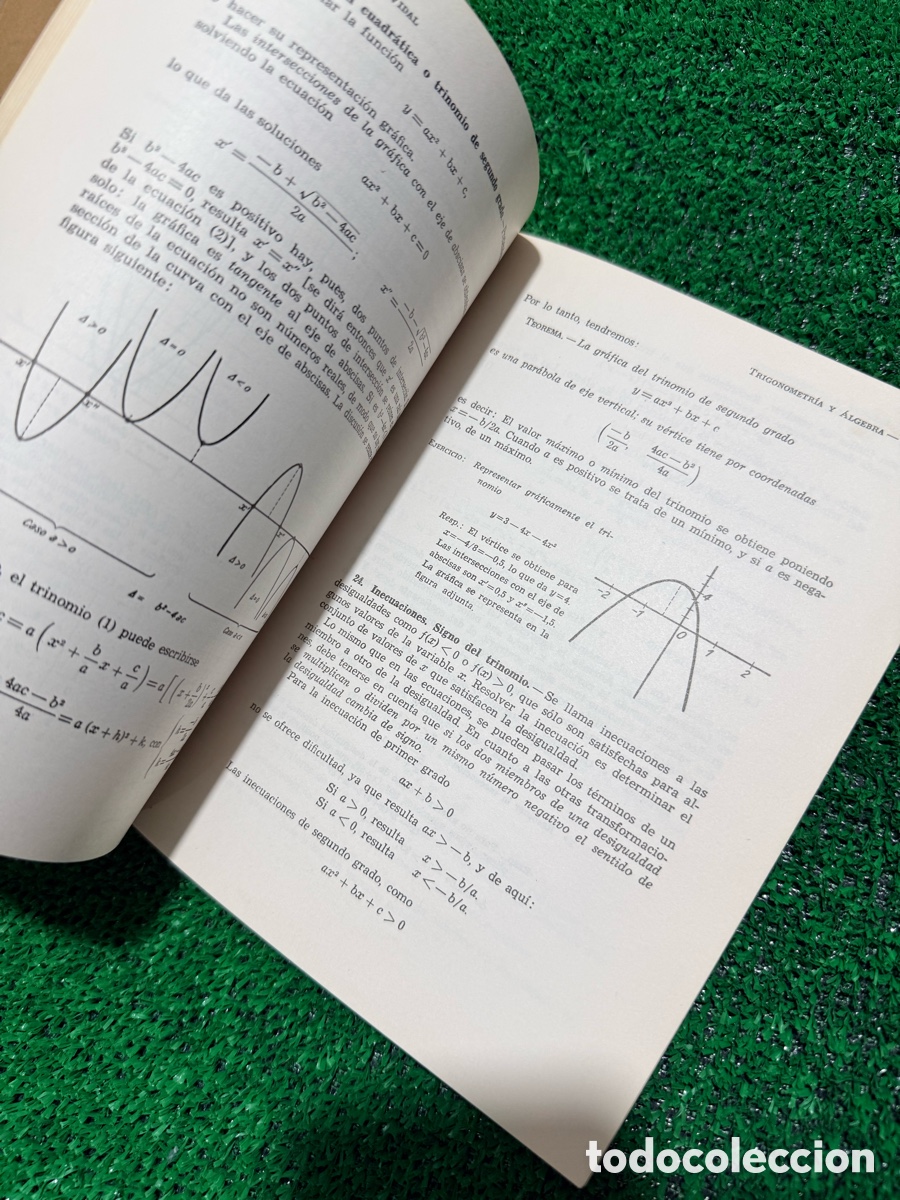 IDAL
cuadrática o trinomio de segundo grado
ar la función
y = ax² + bx + c,
y hacer su representación gráfica.
Las intersecciones de la gráfica con el eje de abscisas se
solviendo la ecuación
ax² + bx + c = 0
lo que da las soluciones
x' = −b + √b² − 4ac / 2a ;
x" = −b − √b² − 4c / 2a
Si b² − 4ac es positivo hay, pues, dos puntos de
b² − 4ac = 0, resulta x' = x" [se dirá entonces que x' es
de la ecuación (2)], y los dos puntos de intersección se
solo: la gráfica es tangente al eje de abscisas. Si
raíces de la ecuación no son números reales, de modo que
sección de la curva con el eje de abscisas. La discusión se
figura siguiente:
Δ > 0
Δ = 0
Δ < 0
x'
x"
x'
x"
Δ > 0
Caso a > 0
Δ = b² − 4ac
el trinomio (1) puede escribirse
c = a (x² + b/a x + c/a) = a [(x +
4ac − b² / 4a = a (x + h)² + k, con
TRIGONOMETRÍA Y ÁLGEBRA —
Por lo tanto, tendremos:
TEOREMA. — La gráfica del trinomio de segundo grado
y = ax² + bx + c
es una parábola de eje vertical: su vértice tiene por coordenadas
(−b/2a, 4ac − b²/4a)
es decir: El valor máximo o mínimo del trinomio se obtiene poniendo
x = − b/2a. Cuando a es positivo se trata de un mínimo, y si a es nega-
tivo, de un máximo.
EJERCICIO: Representar gráficamente el tri-
nomio
y = 3 − 4x − 4x²
Resp.: El vértice se obtiene para
x = −4/8 = −0,5, lo que da y = 4.
Las intersecciones con el eje de
abscisas son x' = 0,5 y x" = −1,5.
La gráfica se representa en la
figura adjunta.
−2
−1
4
0
1
2
24. Inecuaciones. Signo del trinomio. — Se llama inecuaciones a las
desigualdades como f(x) < 0 o f(x) > 0, que sólo son satisfechas para al-
gunos valores de la variable x. Resolver la inecuación es determinar el
conjunto de valores de x que satisfacen la desigualdad.
Lo mismo que en las ecuaciones, se pueden pasar los términos de un
miembro a otro de la desigualdad. En cuanto a las otras transformacio-
nes, debe tenerse en cuenta que si los dos miembros de una desigualdad
se multiplican o dividen por un mismo número negativo el sentido de
la desigualdad cambia de signo.
Para la inecuación de primer grado
ax + b > 0
no se ofrece dificultad, ya que resulta ax > − b, y de aquí:
Si a > 0, resulta x > − b/a.
Si a < 0, resulta x < − b/a.
Las inecuaciones de segundo grado, como
ax² + bx + c > 0
todocoleccion